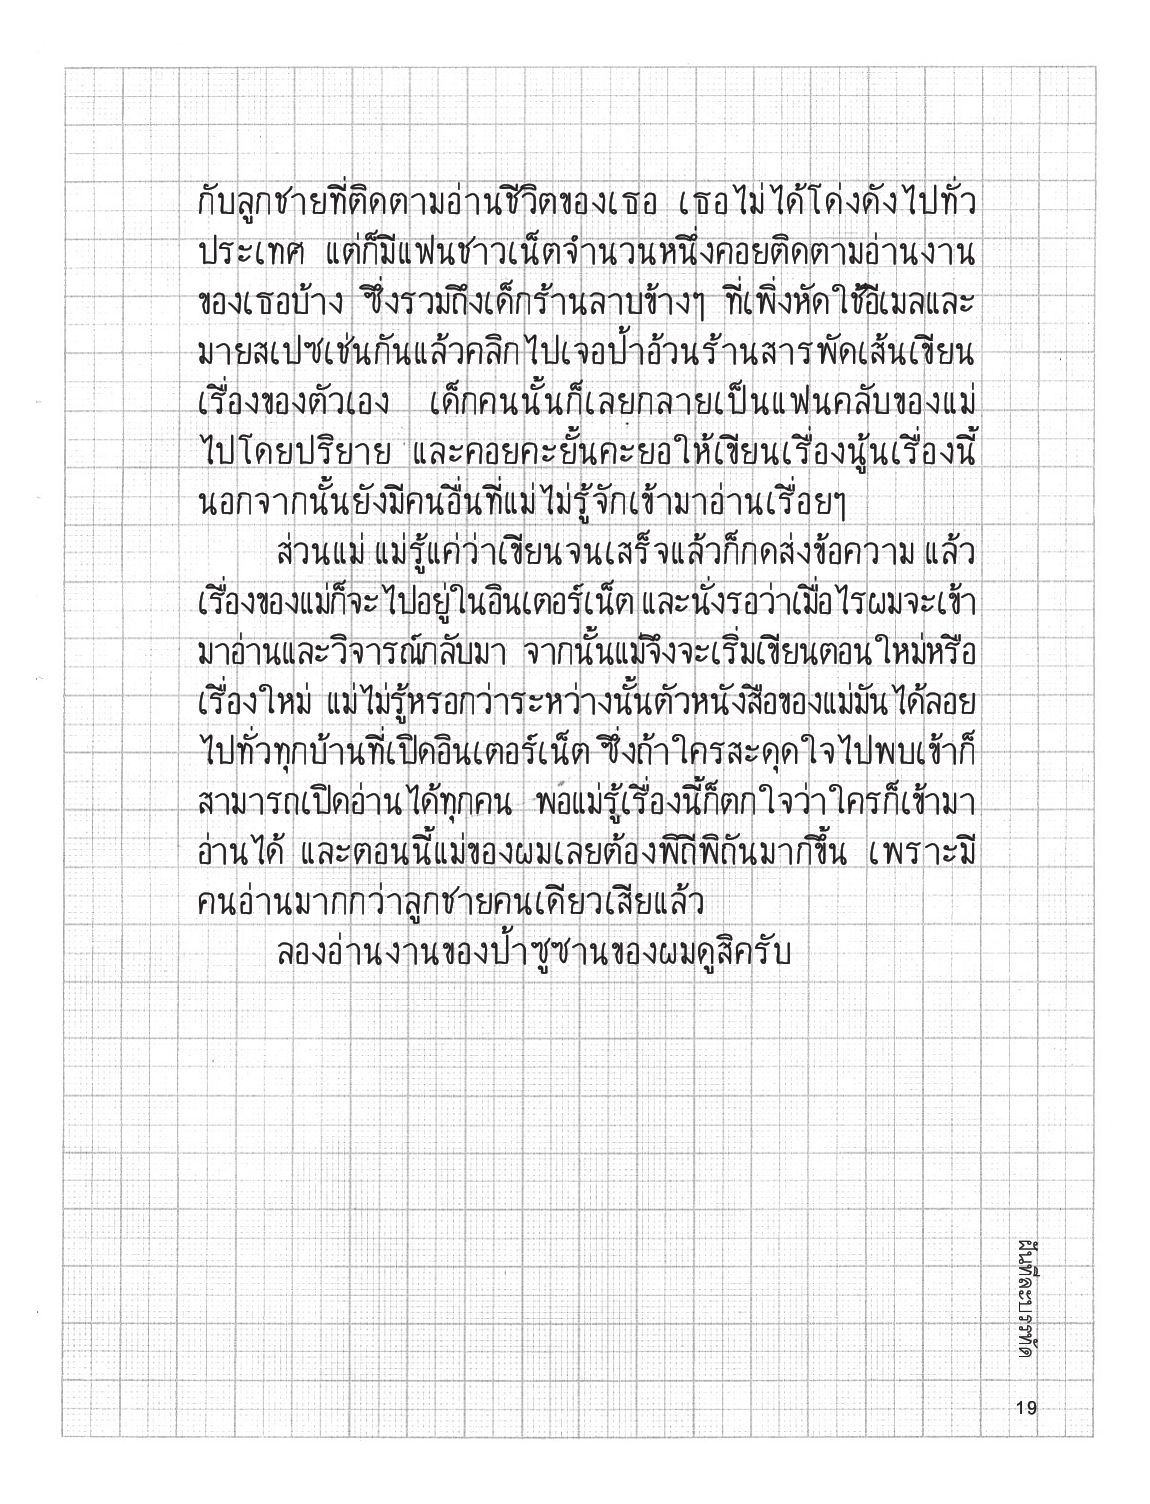 กับลูกชายที่ติดตามอ่านชีวิตของเธอ เธอไม่ได้โด่งดังไปทั่ว
ประเทศ แต่ก็มีแฟนชาวเน็ตจำนวนหนึ่งคอยติดตามอ่านงาน
ของเธอบ้าง ซึ่งรวมถึงเด็กร้านลาบข้างๆ ที่เพิ่งหัดใช้อีเมลและ
มายสเปซเช่นกันแล้วคลิกไปเจอป้าอ้วนร้านสารพัดเส้นเขียน
เรื่องของตัวเอง เด็กคนนั้นก็เลยกลายเป็นแฟนคลับของแม่
ไปโดยปริยาย และคอยคะยั้นคะยอให้เขียนเรื่องนู้นเรื่องนี้
นอกจากนั้นยังมีคนอื่นที่แม่ไม่รู้จักเข้ามาอ่านเรื่อยๆ
ส่วนแม่ แม่รู้แค่ว่าเขียนจนเสร็จแล้วก็กดส่งข้อความ แล้ว
เรื่องของแม่ก็จะไปอยู่ในอินเตอร์เน็ต และนั่งรอว่าเมื่อไรผมจะเข้า
มาอ่านและวิจารณ์กลับมา จากนั้นแม่จึงจะเริ่มเขียนตอนใหม่หรือ
เรื่องใหม่ แม่ไม่รู้หรอกว่าระหว่างนั้นตัวหนังสือของแม่มันได้ลอย
ไปทั่วทุกบ้านที่เปิดอินเตอร์เน็ต ซึ่งถ้าใครสะดุดใจไปพบเข้าก็
สามารถเปิดอ่านได้ทุกคน พอแม่รู้เรื่องนี้ก็ตกใจว่าใครก็เข้ามา
อ่านได้ และตอนนี้แม่ของผมเลยต้องพิถีพิถันมากขึ้น เพราะมี
คนอ่านมากกว่าลูกชายคนเดียวเสียแล้ว
ลองอ่านงานของป้าซูซานของผมดูสิครับ
ฝันทีละบรรทัด
19